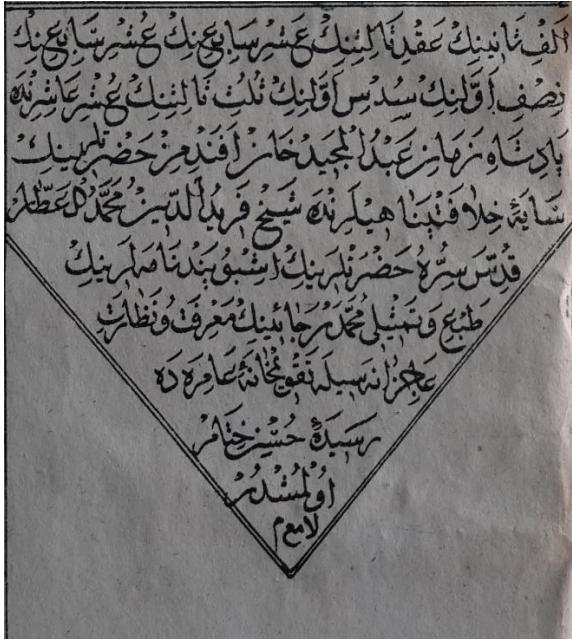 اَلفِ ثانینك عقدِ ثالثنك عشرِ سابعنك عُشرِ سابعنك
نِصفِ اوّلنك سُدسِ اوّلنك ثلثِ ثالثنك عُشرِ عاشرنده
پادشاهِ زمانمز عبد المجید خان افندمز حضرتلرینك
سایهٔ خلافتپناهیلرنده شیخ فرید الدین محمّد العطّار
قدّس سرّه حضرتلرینك اشبو پندنامه‌لرینك
طبع و تمثیلی محمّد رجائینك معرفت و نظارت
عاجزانه‌سیله تقویمخانهٔ عامره ده
رسیدهٔ حسن ختام
اولمشدر